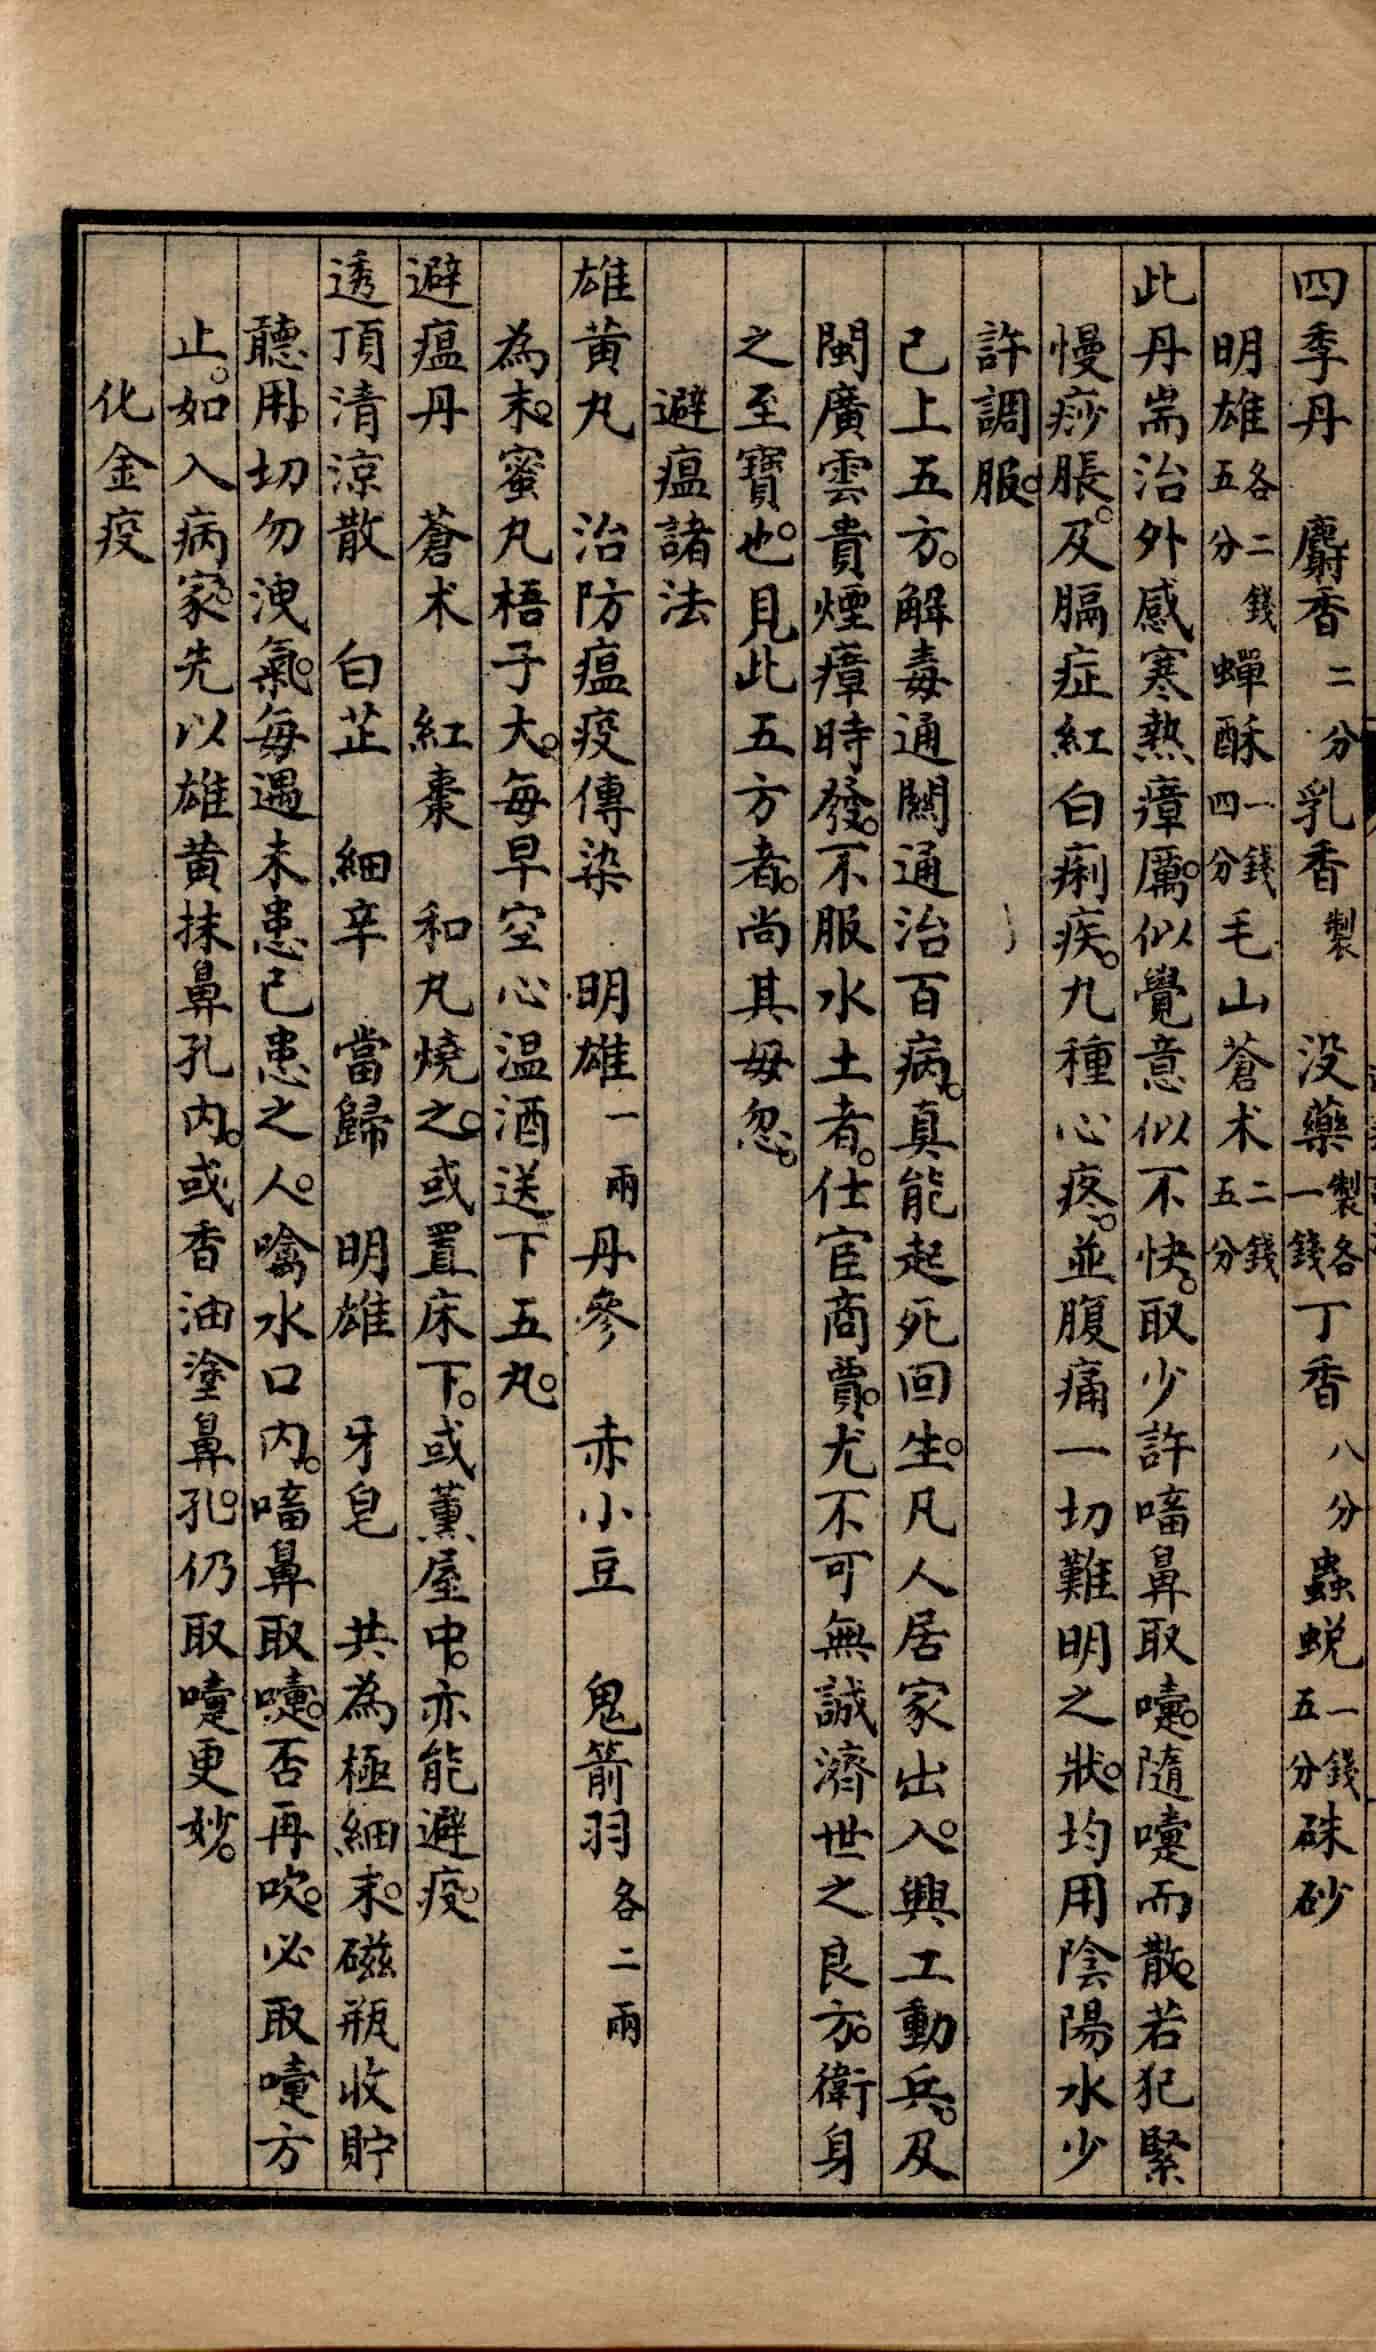 四季丹　麝香二分乳香製　没藥製各一錢丁香八分　蟲蜕一錢五分硃砂
明雄各二錢五分蟬酥一錢四分毛山蒼术二錢五分
此丹耑治外感寒熱瘴厲。似覺意似不快。取少許㗜鼻取嚏。隨嚏而散。若犯緊
慢痧脹。及膈症紅白痢疾。九種心疼。並腹痛一切難明之狀。均用陰陽水少
許調服。
已上五方。解毒通關通治百病。真能起死回生。凡人居家出入。興工動兵。及
閩廣雲貴煙瘴時發。不服水土者。仕宦商賈。尤不可無誠濟世之良方。衛身
之至寶也。見此五方者。尚其毋忽。
避瘟諸法
雄黄丸　治防瘟疫傳染　明雄一兩丹參　赤小豆　鬼箭羽各二兩
為末。蜜丸梧子大。每早空心温酒送下五丸。
避瘟丹　蒼术　紅棗　和丸燒之。或置床下。或薰屋中。亦能避疫。
透頂清涼散　白芷　細辛　當歸　明雄　牙皂　共為極細末。磁瓶收貯
聽用。切勿洩氣。每遇未患已患之人。噙水口内。㗜鼻取嚏。否再吹。必取嚏方
止。如入病家。先以雄黄抹鼻孔内。或香油塗鼻孔。仍取嚏更妙。
化金疫